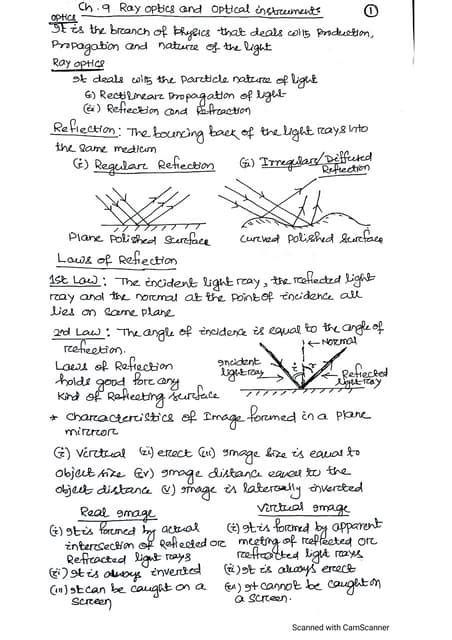 Ch.9 Ray optics and Optical instruments
①
Optics
It is the branch of Physics that deals with Production,
Propagation and nature of the light
Ray optics
It deals with the Particle nature of light
(i) Rectilinear Propagation of light
(ii) Reflection and Refraction
Reflection: The bouncing back of the light rays into
the same medium
(i) Regular Reflection (ii) Irregular/Diffused
Reflection
Plane Polished Surface curved Polished Surface
Laws of Reflection
1st Law: The incident light ray, the reflected light
ray and the normal at the Point of incidence all
lies on same plane
2nd Law: The angle of incidence is equal to the angle of
reflection.
Normal
Laws of Reflection
holds good for any
kind of Reflecting surface
Incident
light ray
i r
Reflected
light ray
* Characteristics of Image formed in a plane
mirror
(i) Virtual (ii) erect (iii) Image size is equal to
object size (iv) Image distance equal to the
object distance (v) Image is laterally inverted
Real Image
(i) It is formed by actual
intersection of Reflected or
Refracted light rays
(ii) It is always inverted
(iii) It can be caught on a
screen
Virtual Image
(i) It is formed by apparent
meeting of reflected or
refracted light rays
(ii) It is always erect
(iii) It cannot be caught on
a screen.
Scanned with CamScanner